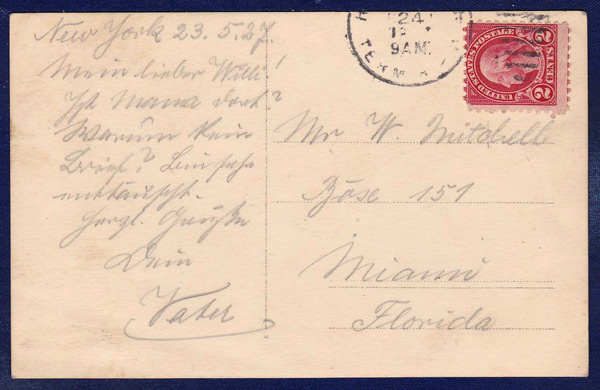 New York 23.5.27.
Mein lieber Willi!
Ist Mama dort?
Warum kein
Brief? Bin sehr
enttäuscht.
Herzl. Grüße
Dein
Vater
24
9AM
TERM
UNITED STATES POSTAGE
2 CENTS 2
Mr W. Mitchell
Böse 151
Miami
Florida